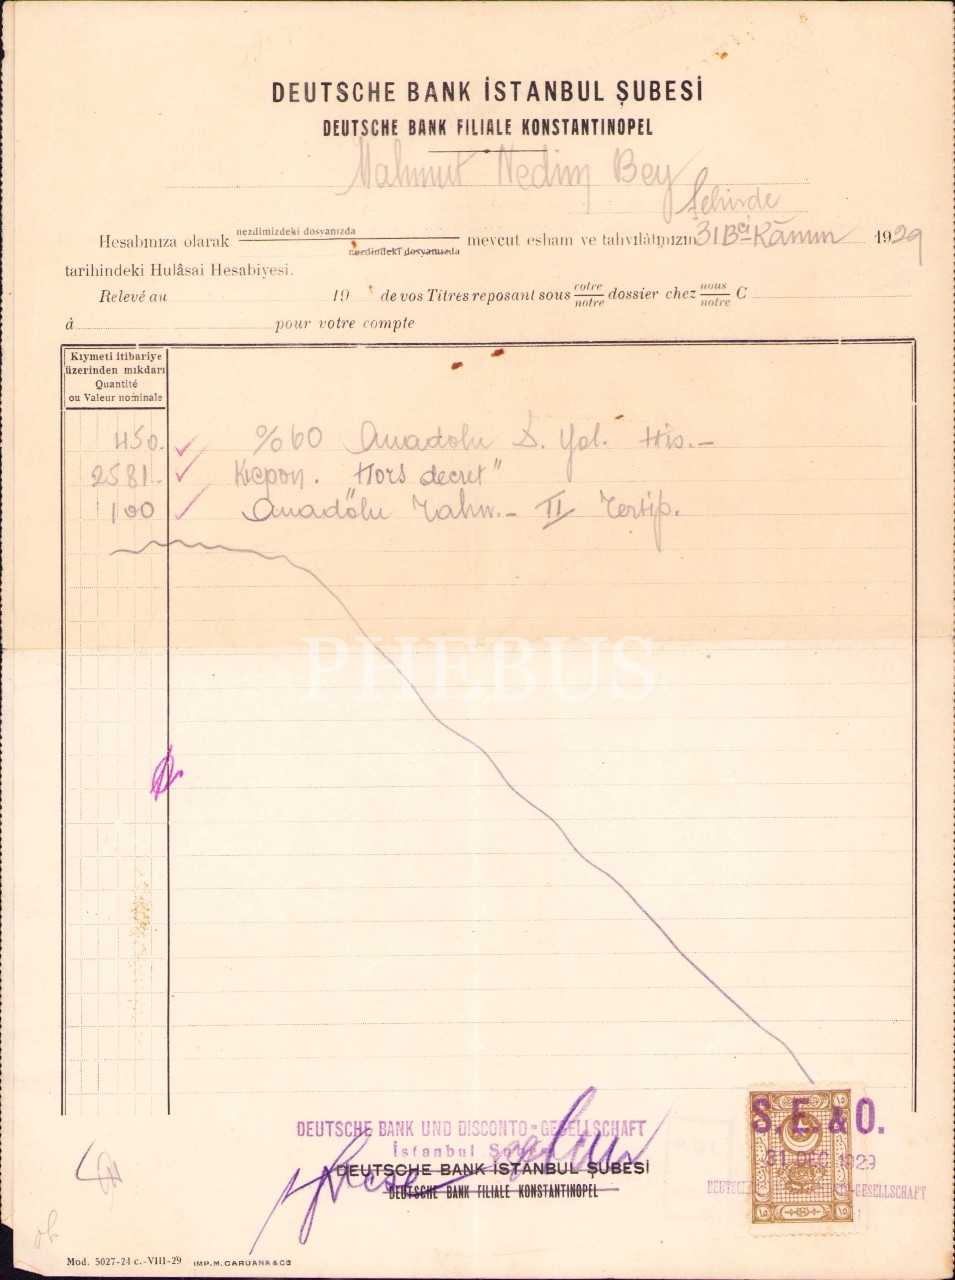 DEUTSCHE BANK İSTANBUL ŞUBESİ
DEUTSCHE BANK FILIALE KONSTANTINOPEL
Mahmut Nedim Bey
Şehirde
Hesabınıza olarak nezdimizdeki dosyanızda nezdindeki dosyanızda mevcut esham ve tahvilâtınızın 31 Bci Kânun 1929
tarihindeki Hulâsai Hesabiyesi.
Relevé au 19 de vos Titres reposant sous votre notre dossier chez nous notre C
à pour votre compte
Kıymeti itibariye
üzerinden mıkdarı
Quantité
ou Valeur nominale
450.- %60 Anadolu D. Yol. His.-
2581.- Kupon. Hors decret"
100 Anadolu Tahv.- II Tertip.
PHEBUS
DEUTSCHE BANK UND DISCONTO-GESELLSCHAFT
İstanbul Şubesi
DEUTSCHE BANK İSTANBUL ŞUBESİ
DEUTSCHE BANK FILIALE KONSTANTINOPEL
S. E. & O.
31 DEC 1929
Mod. 5027-24 c.-VIII-29 IMP. M. CARUANA & Co